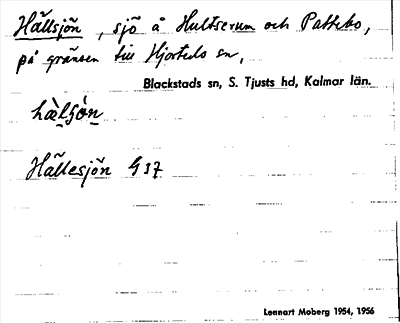 Hällsjön, sjö å Hultserum och Pattebo,
på gränsen till Hjorteds sn,
Blackstads sn, S. Tjusts hd, Kalmar län.
hä̀lʃö́n
Hällesjön G 37
Lennart Moberg 1954, 1956